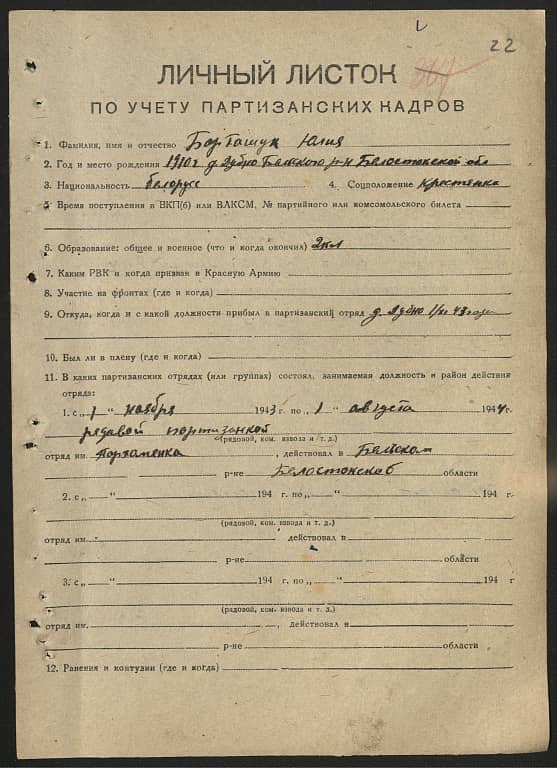 22
ЛИЧНЫЙ ЛИСТОК
ПО УЧЕТУ ПАРТИЗАНСКИХ КАДРОВ
1. Фамилия, имя и отчество Барташук Юлия
2. Год и место рождения 1910 г д. Дубно Бельского р-н Белостокской обл
3. Национальность белорус 4. Соцположение Крестянка
5 Время поступления в ВКП(б) или ВЛКСМ, № партийного или комсомольского билета
6. Образование: общее и военное (что и когда окончил) 2кл
7. Каким РВК и когда призван в Красную Армию
8. Участие на фронтах (где и когда)
9. Откуда, когда и с какой должности прибыл в партизанский отряд д. Дубно 1/XI 43 года
10. Был ли в плену (где и когда)
11. В каких партизанских отрядах (или группах) состоял, занимаемая должность и район действия
отряда:
1. с „ 1 “ ноября 1943 г. по „ 1 “ августа 1944 г.
рядавой партизанкой
(рядовой, ком. взвода и т. д.)
отряд им. Пархаменка, действовал в Бельском
р-не Белостокской области
2. с „ “ 194 г. по „ “ 194 г.
(рядовой, ком. взвода и т. д.)
отряд им. , действовал в
р-не области
3. с „ “ 194 г. по „ “ 194 г
(рядовой, ком. взвода и т. д.)
отряд им. , действовал в
р-не области
12. Ранения и контузии (где и когда)